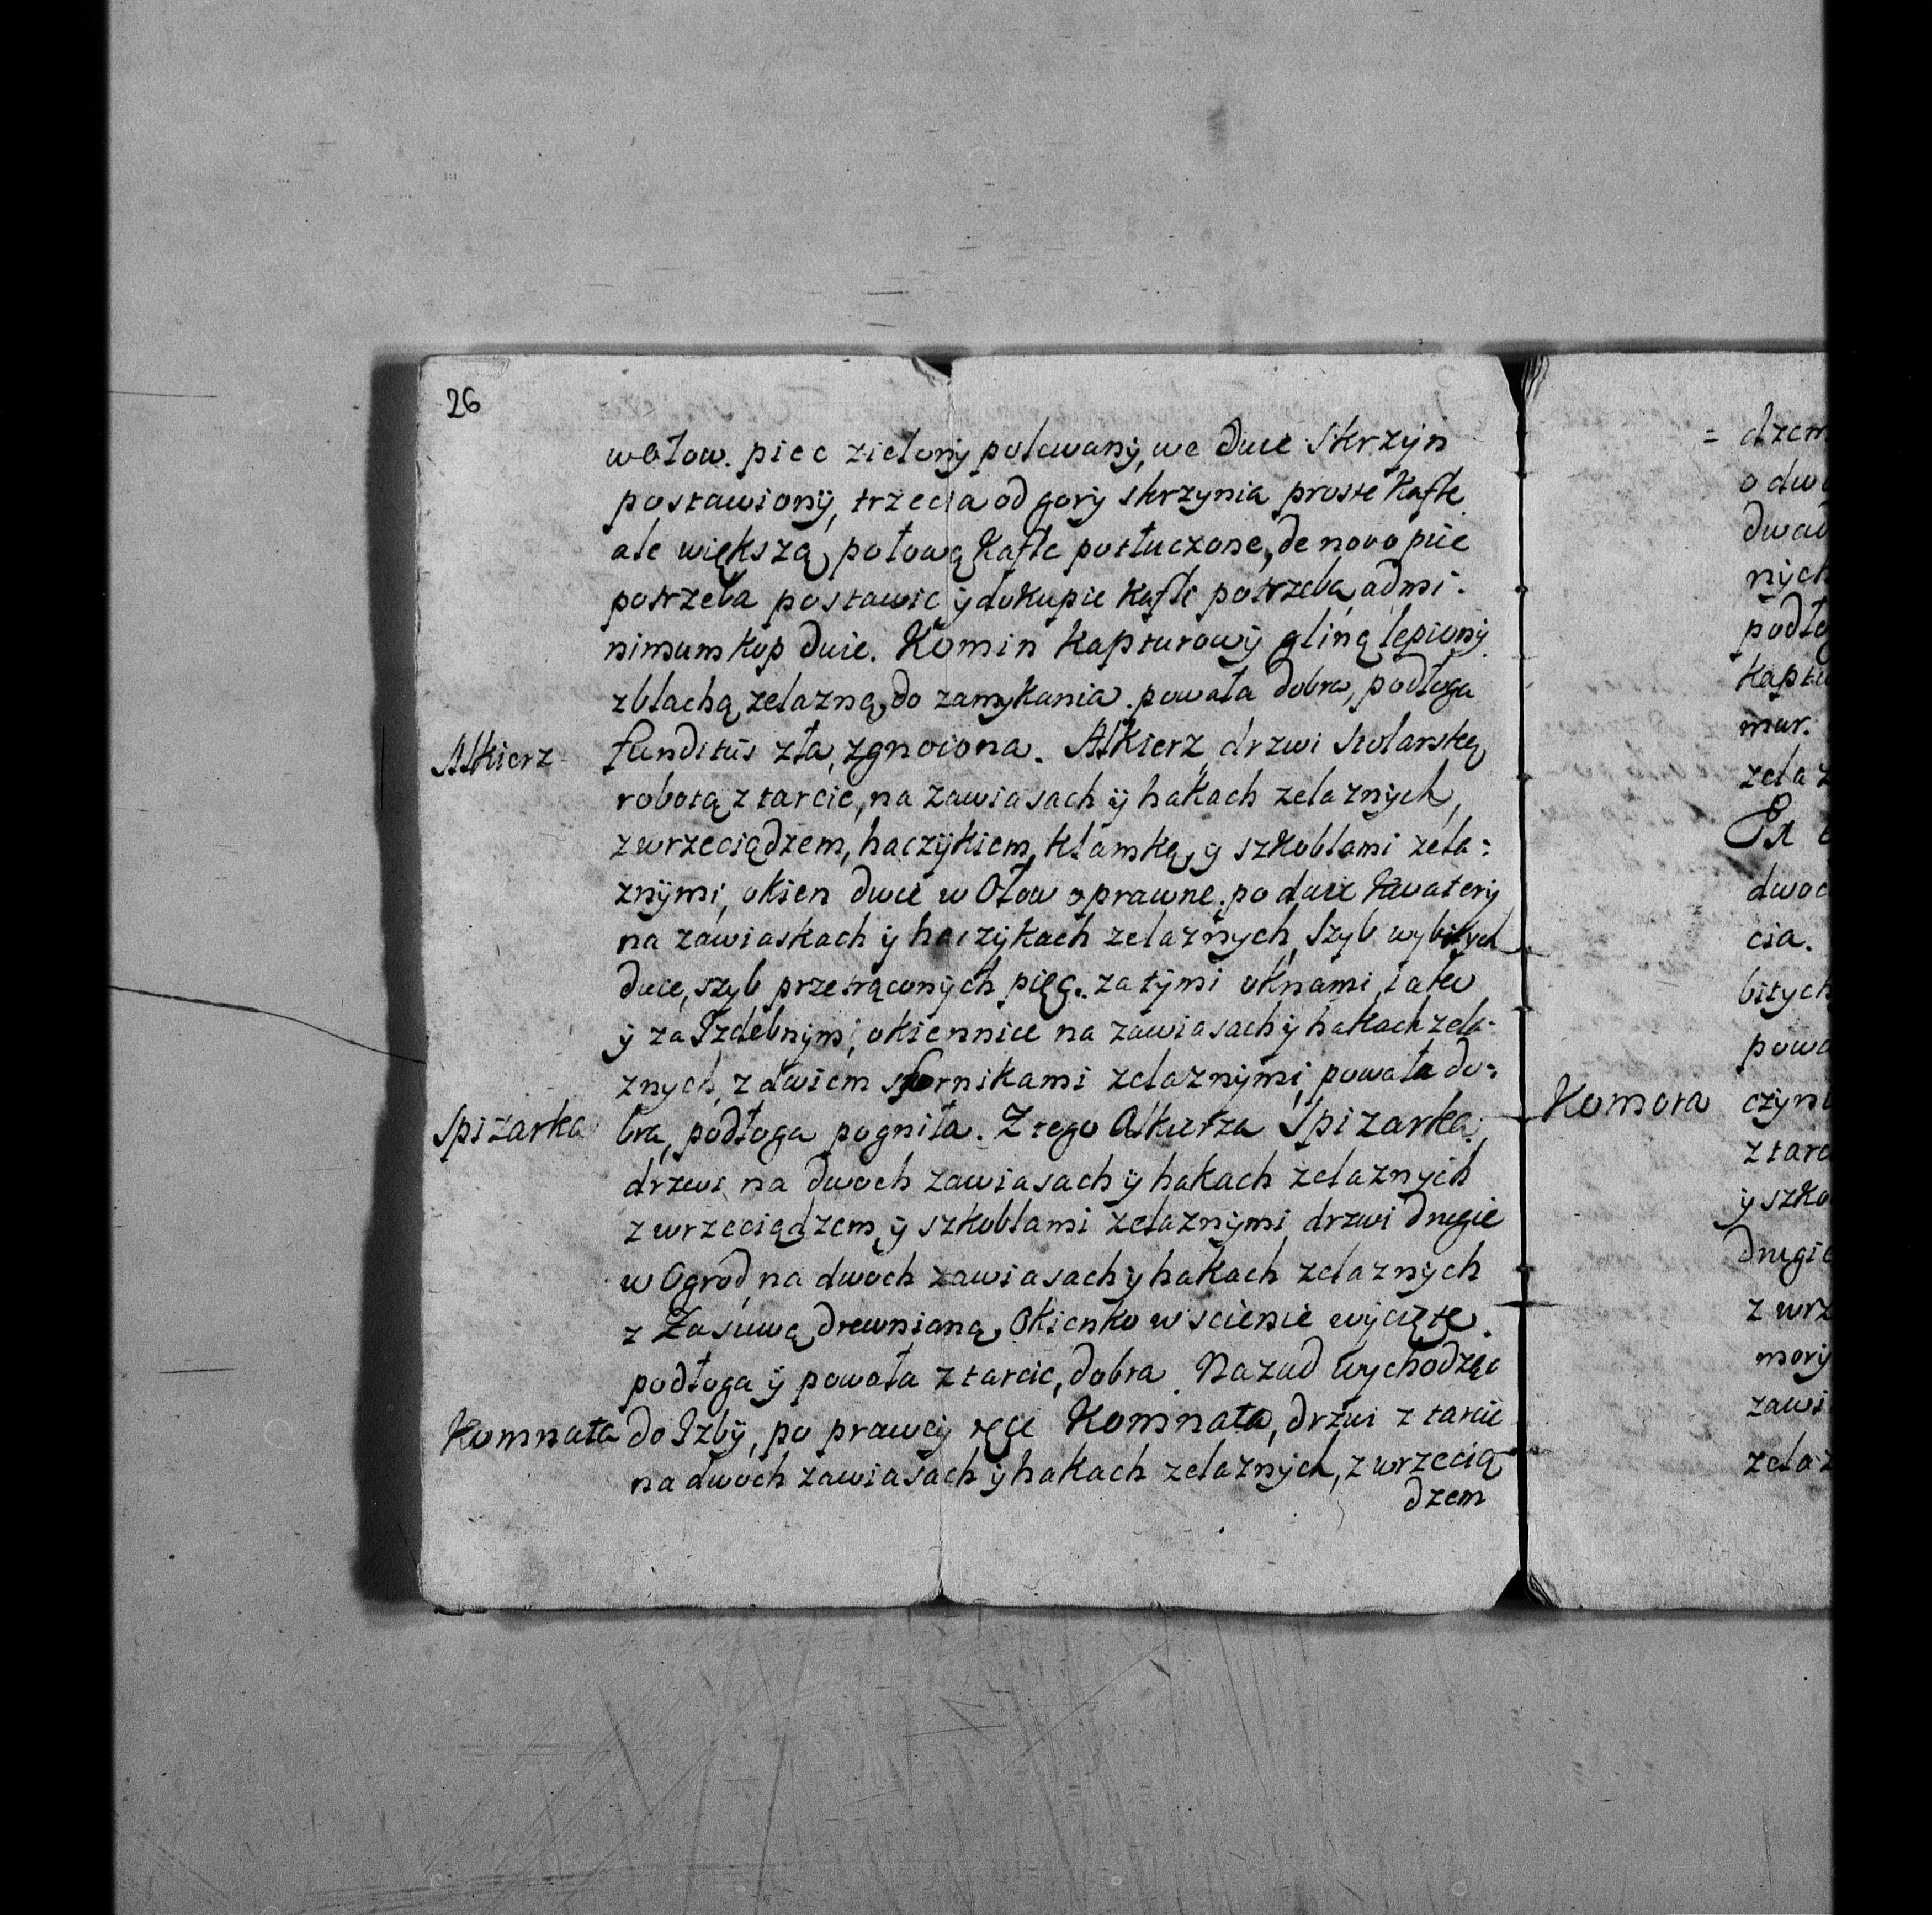 26
w ołow. piec zielony polewany, we dwie Skrzyn
postawiony, trzecia od gory skrzynia proste Kafle
ale większą połową Kafle potłuczone, de novo piec
potrzeba postawic ÿ dokupic kafli potrzeba, ad mi-
nimum kop dwie. Komin kapturowÿ gliną lepionÿ
z blachą zelazną, do zamykania. powała dobra, podłoga
Alkierz funditūs zła, zgnoiona. Alkierz drzwi stolarską
robotą z tarcic, na zawiasach ÿ hakach zelaznÿch,
z wrzeciądzem, haczÿkiem, klamką, y szkoblami zela=
znÿmi, okien dwie w Ołow oprawne. po dwie kwaterÿ
na zawiaskach ÿ haczÿkach zelaznÿch, szÿb wybitych
dwie, szyb przetrąconÿch pięc. za tÿmi oknami, iako
ÿ za Izdebnÿmi, okiennice na zawiasach ÿ hakach zela-
znych, z dwiem sfornikami zelaznÿmi, powała do=
Spizarka bra, podłoga pogniła. Z tego Alkierza Spizarka,
drzwi na dwoch zawiasach ÿ hakach zelaznÿch
z wrzeciądzem, ÿ szkoblami zelaznÿmi, drzwi drugie
w Ogrod, na dwoch zawiasach ÿ hakach zelaznÿch
z Zasuwą drewnianą, Okienko w scienie wÿcięte.
podłoga ÿ powała z tarcic, dobra. Nazad wychodząc
Komnata do Izbÿ, po prawey ręce Komnata, drzwi z tarcic
na dwoch zawiasach ÿ hakach zelaznÿch, z wrzecią
dzem
= dzem
o dw
dwa
nÿch
podło
kaptu
mur.
zelaz
dwo
cia.
bitych
powa
Komora czÿn
z tarc
ÿ szko
drugie
z wrz
morÿ
zawi
zelaz